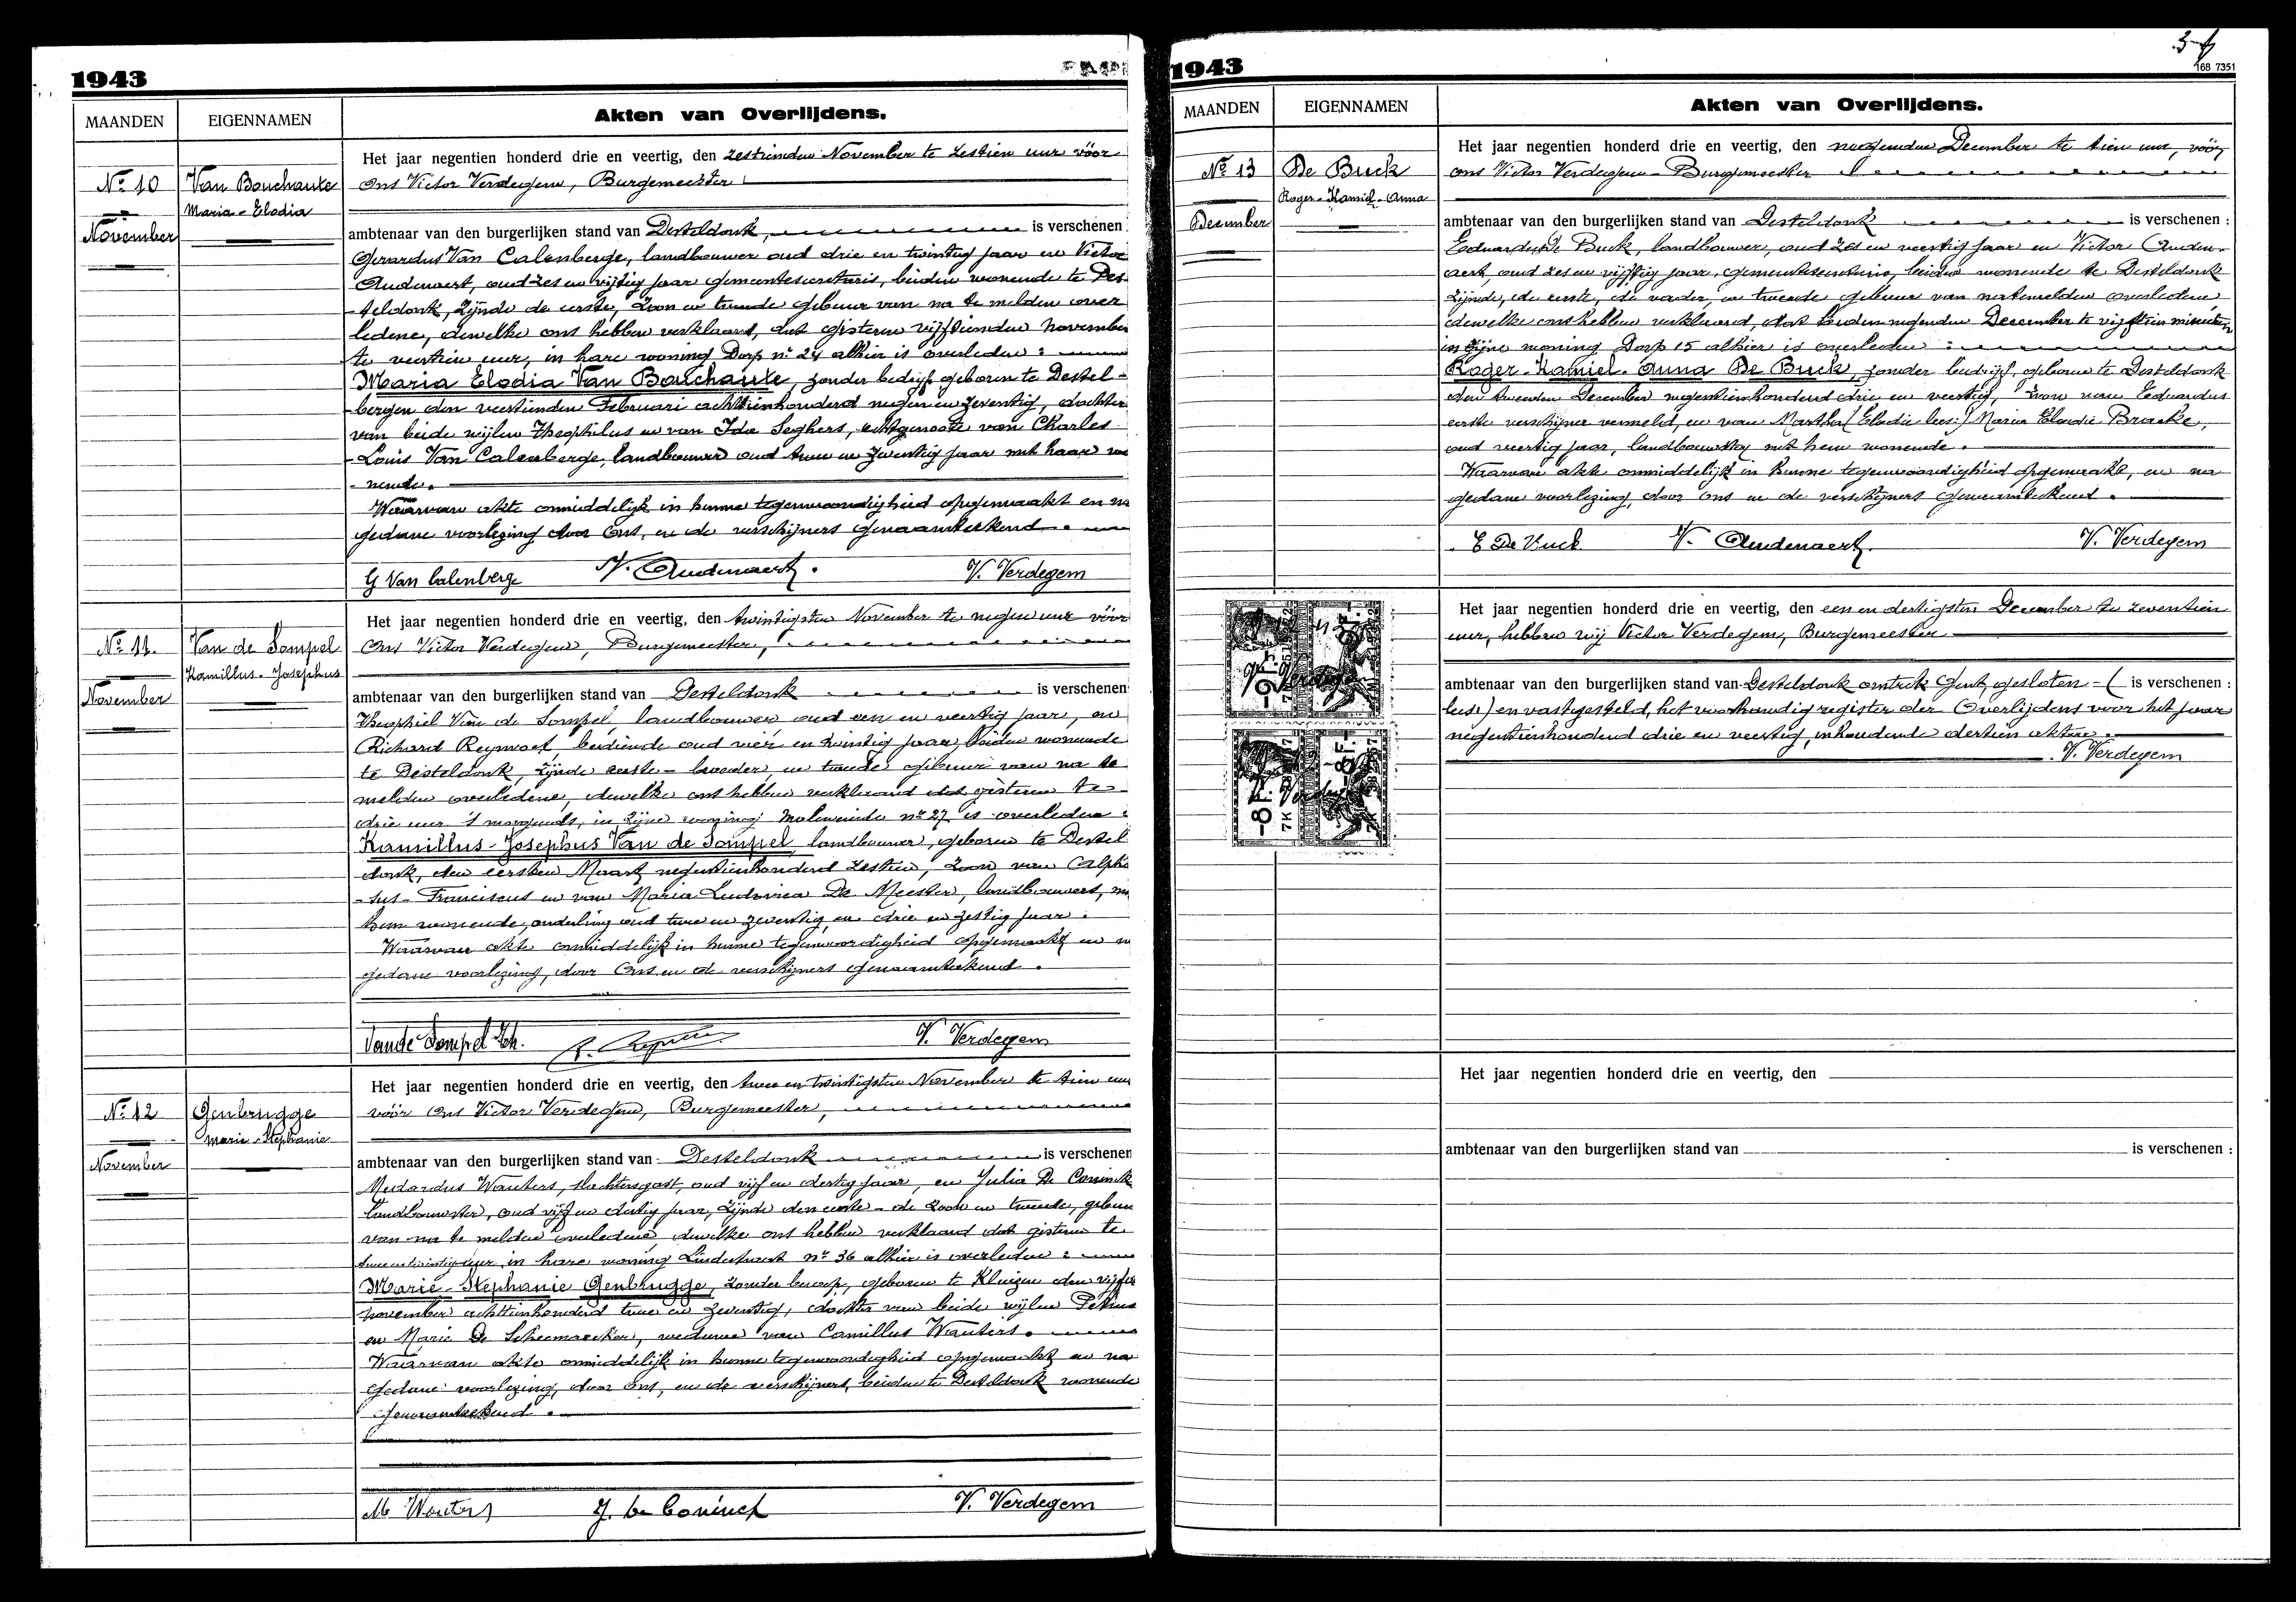 1943
MAANDEN EIGENNAMEN Akten van Overlijdens.
No 10 Van Bouchaute
Maria-Elodia
November
Het jaar negentien honderd drie en veertig, den zestienden November te zestien uur vóór
Ons Victor Verdegem, Burgemeester
ambtenaar van den burgerlijken stand van Desteldonk, is verschenen
Gerardus Van Calenberge, landbouwer oud drie en twintig jaar en Victor
Audenaert, oud zes en vijftig jaar gemeentesecretaris, beiden wonende te Des-
-teldonk, zijnde de eerste, zoon en tweede gebuur van na te melden over
ledene, dewelke ons hebben verklaard, dat gisteren vijftienden November
te veertien uur, in hare woning Dorp no 24 alhier is overleden :
Maria Elodia Van Bouchaute, zonder bedrijf geboren te Destel-
-bergen den veertienden Februari achttienhonderd negen en zeventig, dochter
van beide wijlen Theophilus en van Ida Seghers, echtgenoote van Charles
-Louis Van Calenberge, landbouwer oud twee en zeventig jaar met haar wo
-nende.
Waarvan akte onmiddelijk in hunne tegenwoordigheid opgemaakt en na
gedane voorlezing door Ons, en de verschijners genaamteekend.
G Van Calenberge V. Audenaert. V. Verdegem
No 11. Van de Sompel
Kamillus-Josephus
November
Het jaar negentien honderd drie en veertig, den twintigsten November te negen uur vóór
Ons Victor Verdegem, Burgemeester,
ambtenaar van den burgerlijken stand van Desteldonk is verschenen
Theophiel Van de Sompel, landbouwer oud een en veertig jaar, en
Richard Reyniers bediende oud vier en twintig jaar, beiden wonende
te Desteldonk, zijnde eerste - broeder, en tweede gebuur van na te
melden overledene, dewelke ons hebben verklaard dat gisteren te -
drie uur 's morgends, in zijne woning Moleneinde no 27 is overleden :
Kamillus-Josephus Van de Sompel, landbouwer, geboren te Destel
donk, den eersten Maart negentienhonderd zestien, zoon van Alpho
-sus-Franciscus en van Maria-Ludovica De Meester, landbouwers, m
hem wonende, onderling oud twee en zeventig en drie en zestig jaar.
Waarvan akte onmiddelijk in hunne tegenwoordigheid opgemaakt en n
gedane voorlezing, door Ons en de verschijners genaamteekend.
Van de Sompel Th. V. Verdegem
No 12 Genbrugge
Marie-Stephanie
November
Het jaar negentien honderd drie en veertig, den twee en twintigsten November te tien uur
vóór Ons Victor Verdegem, Burgemeester,
ambtenaar van den burgerlijken stand van Desteldonk is verschenen
Medardus Wauters, slachtersgast, oud vijf en dertig jaar, en Julia De Coninck
landbouwster, oud vijf en dertig jaar, zijnde den eerste - de zoon en tweede, gebuur
van na te melden overledene dewelke ons hebben verklaard dat gisteren te
twee en twintig uur in hare woning Lindestraat no 36 alhier is overleden :
Marie-Stephanie Genbrugge, zonder beroep, geboren te Kluizen den vijfde
november achttienhonderd twee en zeventig, dochter van beide wijlen Petrus
en Marie De Scheemaecker, weduwe van Camillus Wauters.
Waarvan akte onmiddelijk in hunne tegenwoordigheid opgemaakt en na
gedane voorlezing, door Ons, en de verschijners, beiden te Desteldonk wonende
genaamteekend.
M Wauters J. De Coninck V. Verdegem
168 7351
1943
MAANDEN EIGENNAMEN Akten van Overlijdens.
No 13 De Buck
Roger-Kamiel-Anna
December
Het jaar negentien honderd drie en veertig, den negenden December te tien uur, vóór
ons Victor Verdegem - Burgemeester
ambtenaar van den burgerlijken stand van Desteldonk is verschenen :
Eduardus De Buck, landbouwer, oud zes en veertig jaar en Victor Auden-
aert, oud zes en vijftig jaar, gemeentesecretaris, beiden wonende te Desteldonk
zijnde, de eerste, de vader, en tweede gebuur van natemelden overledene
dewelke ons hebben verklaard, dat heden negenden December te vijftien minuten
in zijne woning Dorp 15 alhier is overleden :
Roger-Kamiel-Anna De Buck, zonder bedrijf, geboren te Desteldonk
den tweeden December negentienhonderd drie en veertig, zoon van Eduardus
eerste verschijner vermeld, en van Martha (Elodie lees:) Maria Elodie Braeke,
oud veertig jaar, landbouwster met hem wonende.
Waarvan akte onmiddelijk in hunne tegenwoordigheid opgemaakt, en na
gedane voorlezing, door ons en de verschijners genaamteekend.
E De Buck V. Audenaert. V. Verdegem
Het jaar negentien honderd drie en veertig, den een en dertigsten December te zeventien
uur, hebben wij Victor Verdegem, Burgemeester
ambtenaar van den burgerlijken stand van Desteldonk omtrek Gent, gesloten - ( is verschenen :
lees:) en vastgesteld, het veelhandig register der Overlijdens voor het jaar
negentienhonderd drie en veertig, inhoudende dertien akten.
V. Verdegem
-8F.-
-8F.-
Het jaar negentien honderd drie en veertig, den
ambtenaar van den burgerlijken stand van is verschenen :